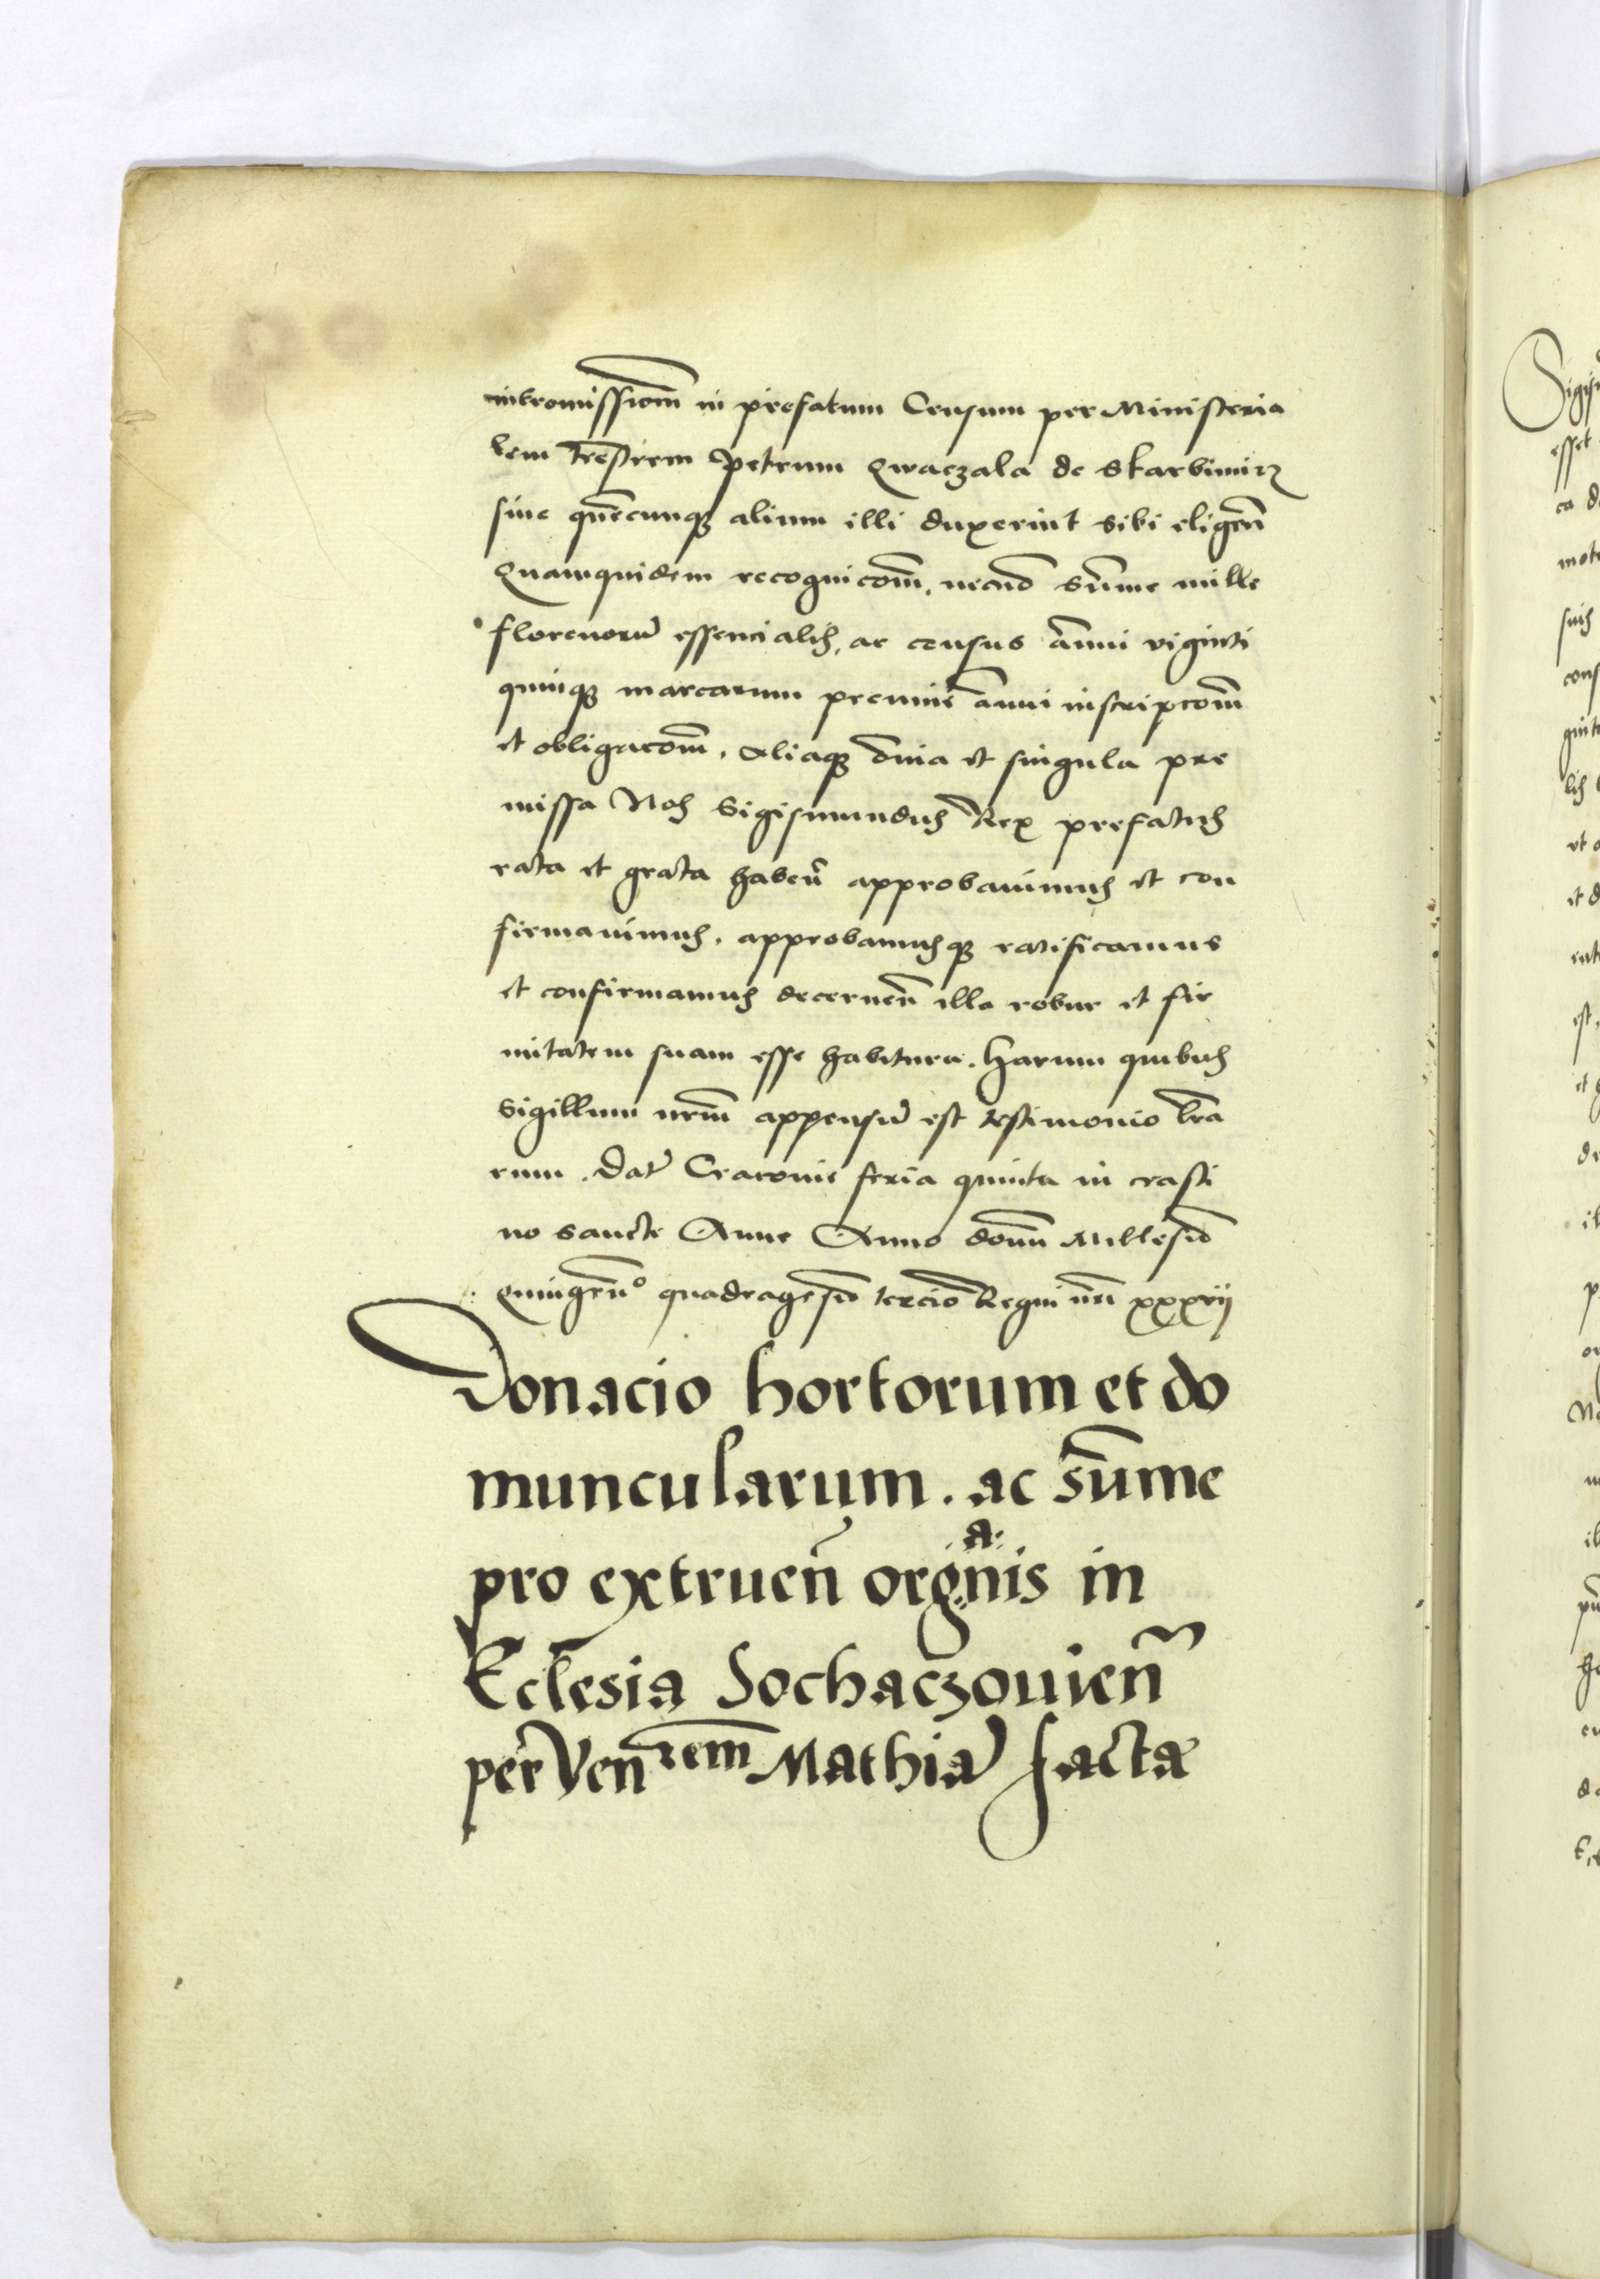 intromissiom̄ in prefatum Censum per Ministeria
lem tr̄estrem Petrum Qwaczala de Skarbimirz
siue quēcunq; alium illi duxerint sibi eligen̄
Quamquidem recognicom̄. necno͂ Su͂me mille
florenoru͂ essencialis, ac census a͂nui viginti
quinq; marcarum premine͂ a͂nui inscripcom̄
et obligacom̄. Aliaq; o͂nia et singula pre
missa Nos Sigismundus Rex prefatus
rata et grata haben̄ approbauimus et con
firmauimus. approbamusq; ratificamus
et confirmamus decernen̄ illa robur et fir
mitatem suam esse habitura. Harum quibus
Sigillum nr̄m appensu͂ est testimonio l̄ra
rum. Dat͂ Cracovie feria quinta in crasti
no sancte Anne Anno domi͂ Millesi͂o
quingen̄o quadragesi͂o tercio Regni nr̄i xxxvii
Donacio hortorum et do
muncularum. ac su͂me
pro extruen̄ organis in
Ecl̄esia Sochaczouien̄
per Ven rem Mathia͂ facta